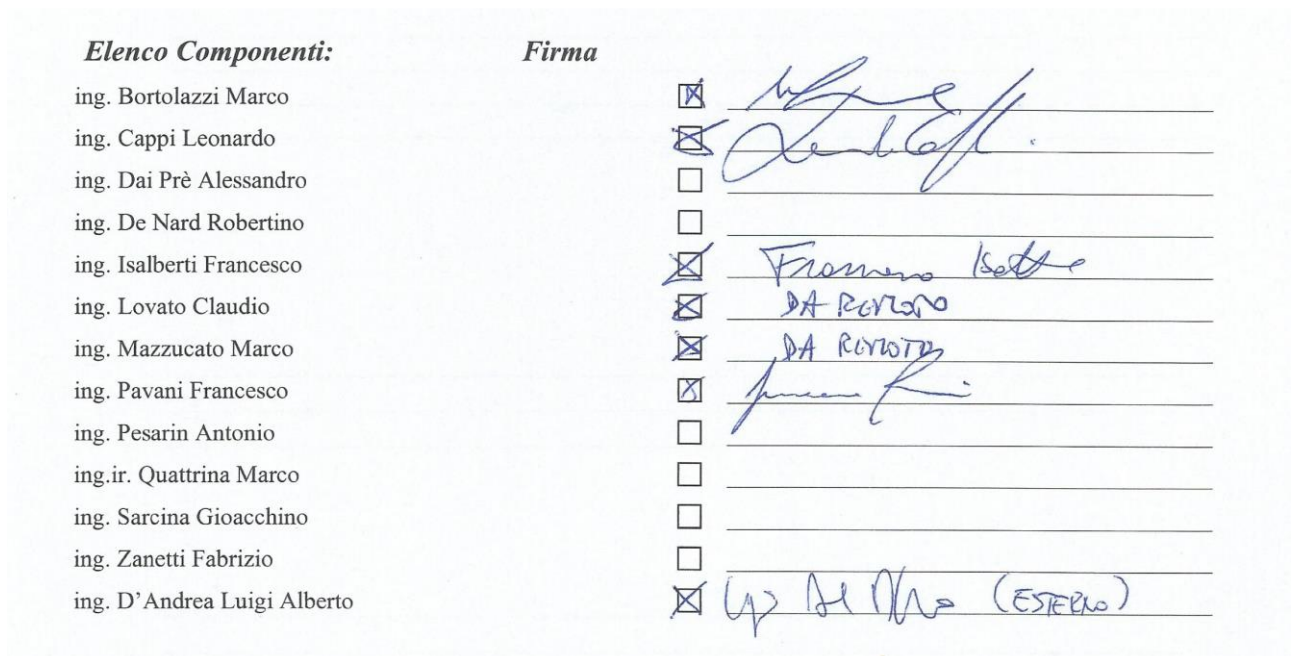 Elenco Componenti: Firma
ing. Bortolazzi Marco
ing. Cappi Leonardo
ing. Dai Prè Alessandro
ing. De Nard Robertino
ing. Isalberti Francesco Francesco
ing. Lovato Claudio DA REMOTO
ing. Mazzucato Marco DA REMOTO
ing. Pavani Francesco
ing. Pesarin Antonio
ing.ir. Quattrina Marco
ing. Sarcina Gioacchino
ing. Zanetti Fabrizio
ing. D'Andrea Luigi Alberto (ESTERNO)